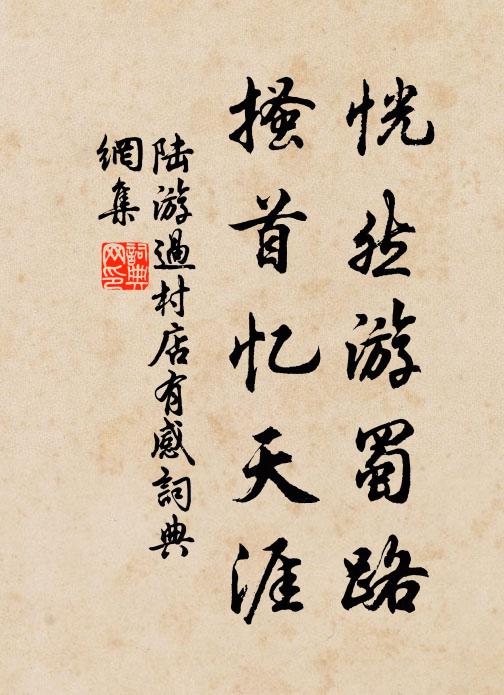 恍然游蜀路
搔首忆天涯
陆游過村店有感詞典
網集
詞典网印